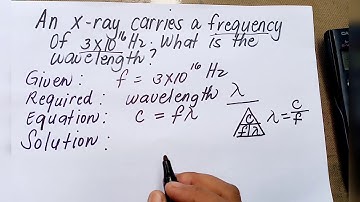 An x-ray carries a frequency
of 3x10¹⁶ Hz. What is the
wavelength?
Given: f = 3x10¹⁶ Hz
Required: wavelength λ
Equation: c = fλ
c
f λ
λ = c/f
Solution: